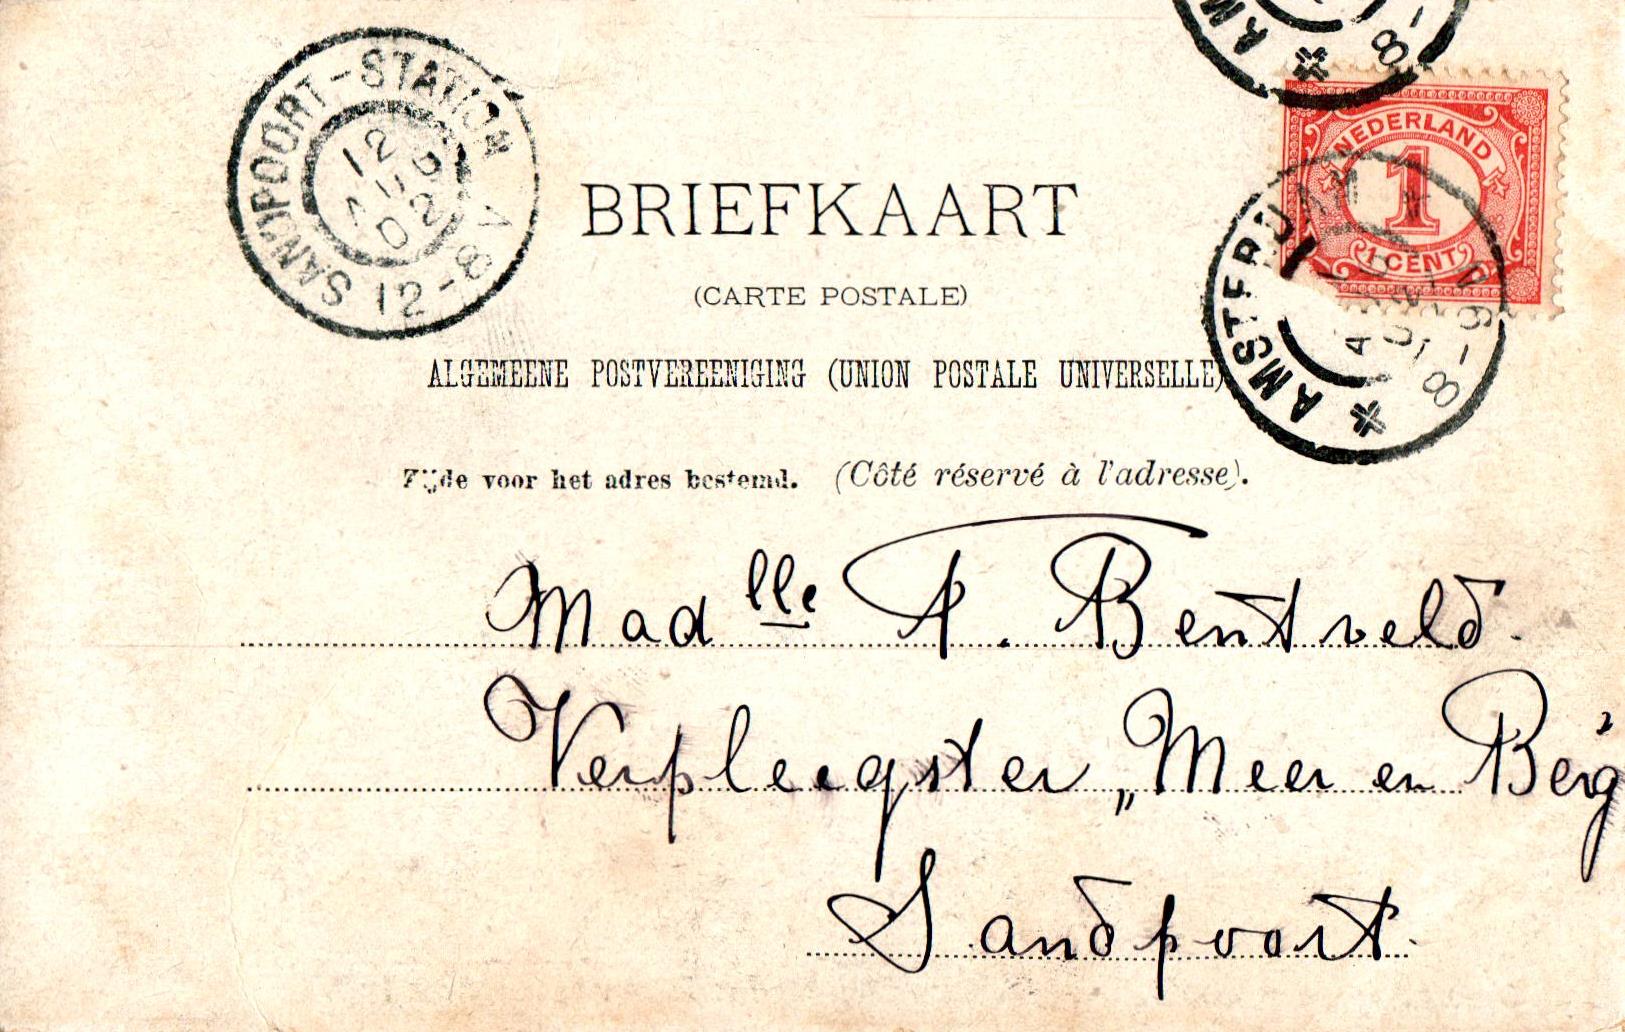 SANDPOORT-STATION
12
02
12-8V
NEDERLAND
1
1 CENT
AMSTERDAM
8-9
BRIEFKAART
(CARTE POSTALE)
ALGEMEENE POSTVEREENIGING (UNION POSTALE UNIVERSELLE)
Zijde voor het adres bestemd. (Côté réservé à l'adresse).
Mad lle A. Bentveld.
Verpleegster „Meer en Berg"
Sandpoort.